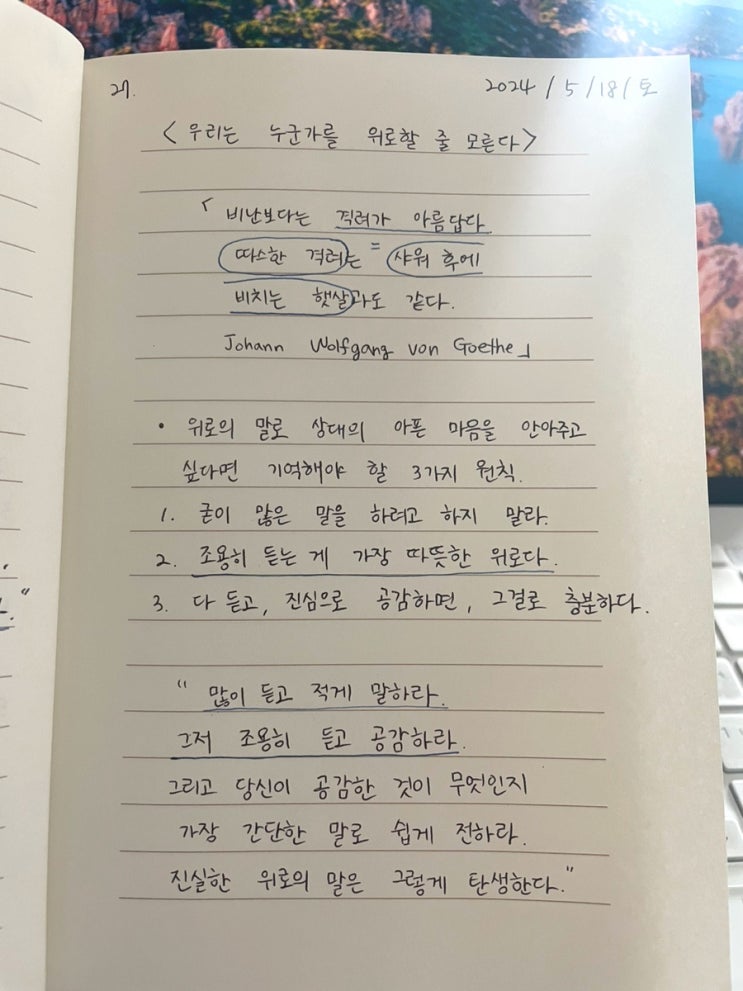 27.
2024 / 5 / 18 / 토
< 우리는 누군가를 위로할 줄 모른다 >
「 비난보다는 격려가 아름답다.
따스한 격려는 = 샤워 후에
비치는 햇살과도 같다.
Johann Wolfgang von Goethe 」
• 위로의 말로 상대의 아픈 마음을 안아주고
싶다면 기억해야 할 3가지 원칙.
1. 굳이 많은 말을 하려고 하지 말라.
2. 조용히 듣는 게 가장 따뜻한 위로다.
3. 다 듣고, 진심으로 공감하면, 그걸로 충분하다.
" 많이 듣고 적게 말하라.
그저 조용히 듣고 공감하라.
그리고 당신이 공감한 것이 무엇인지
가장 간단한 말로 쉽게 전하라.
진실한 위로의 말은 그렇게 탄생한다."